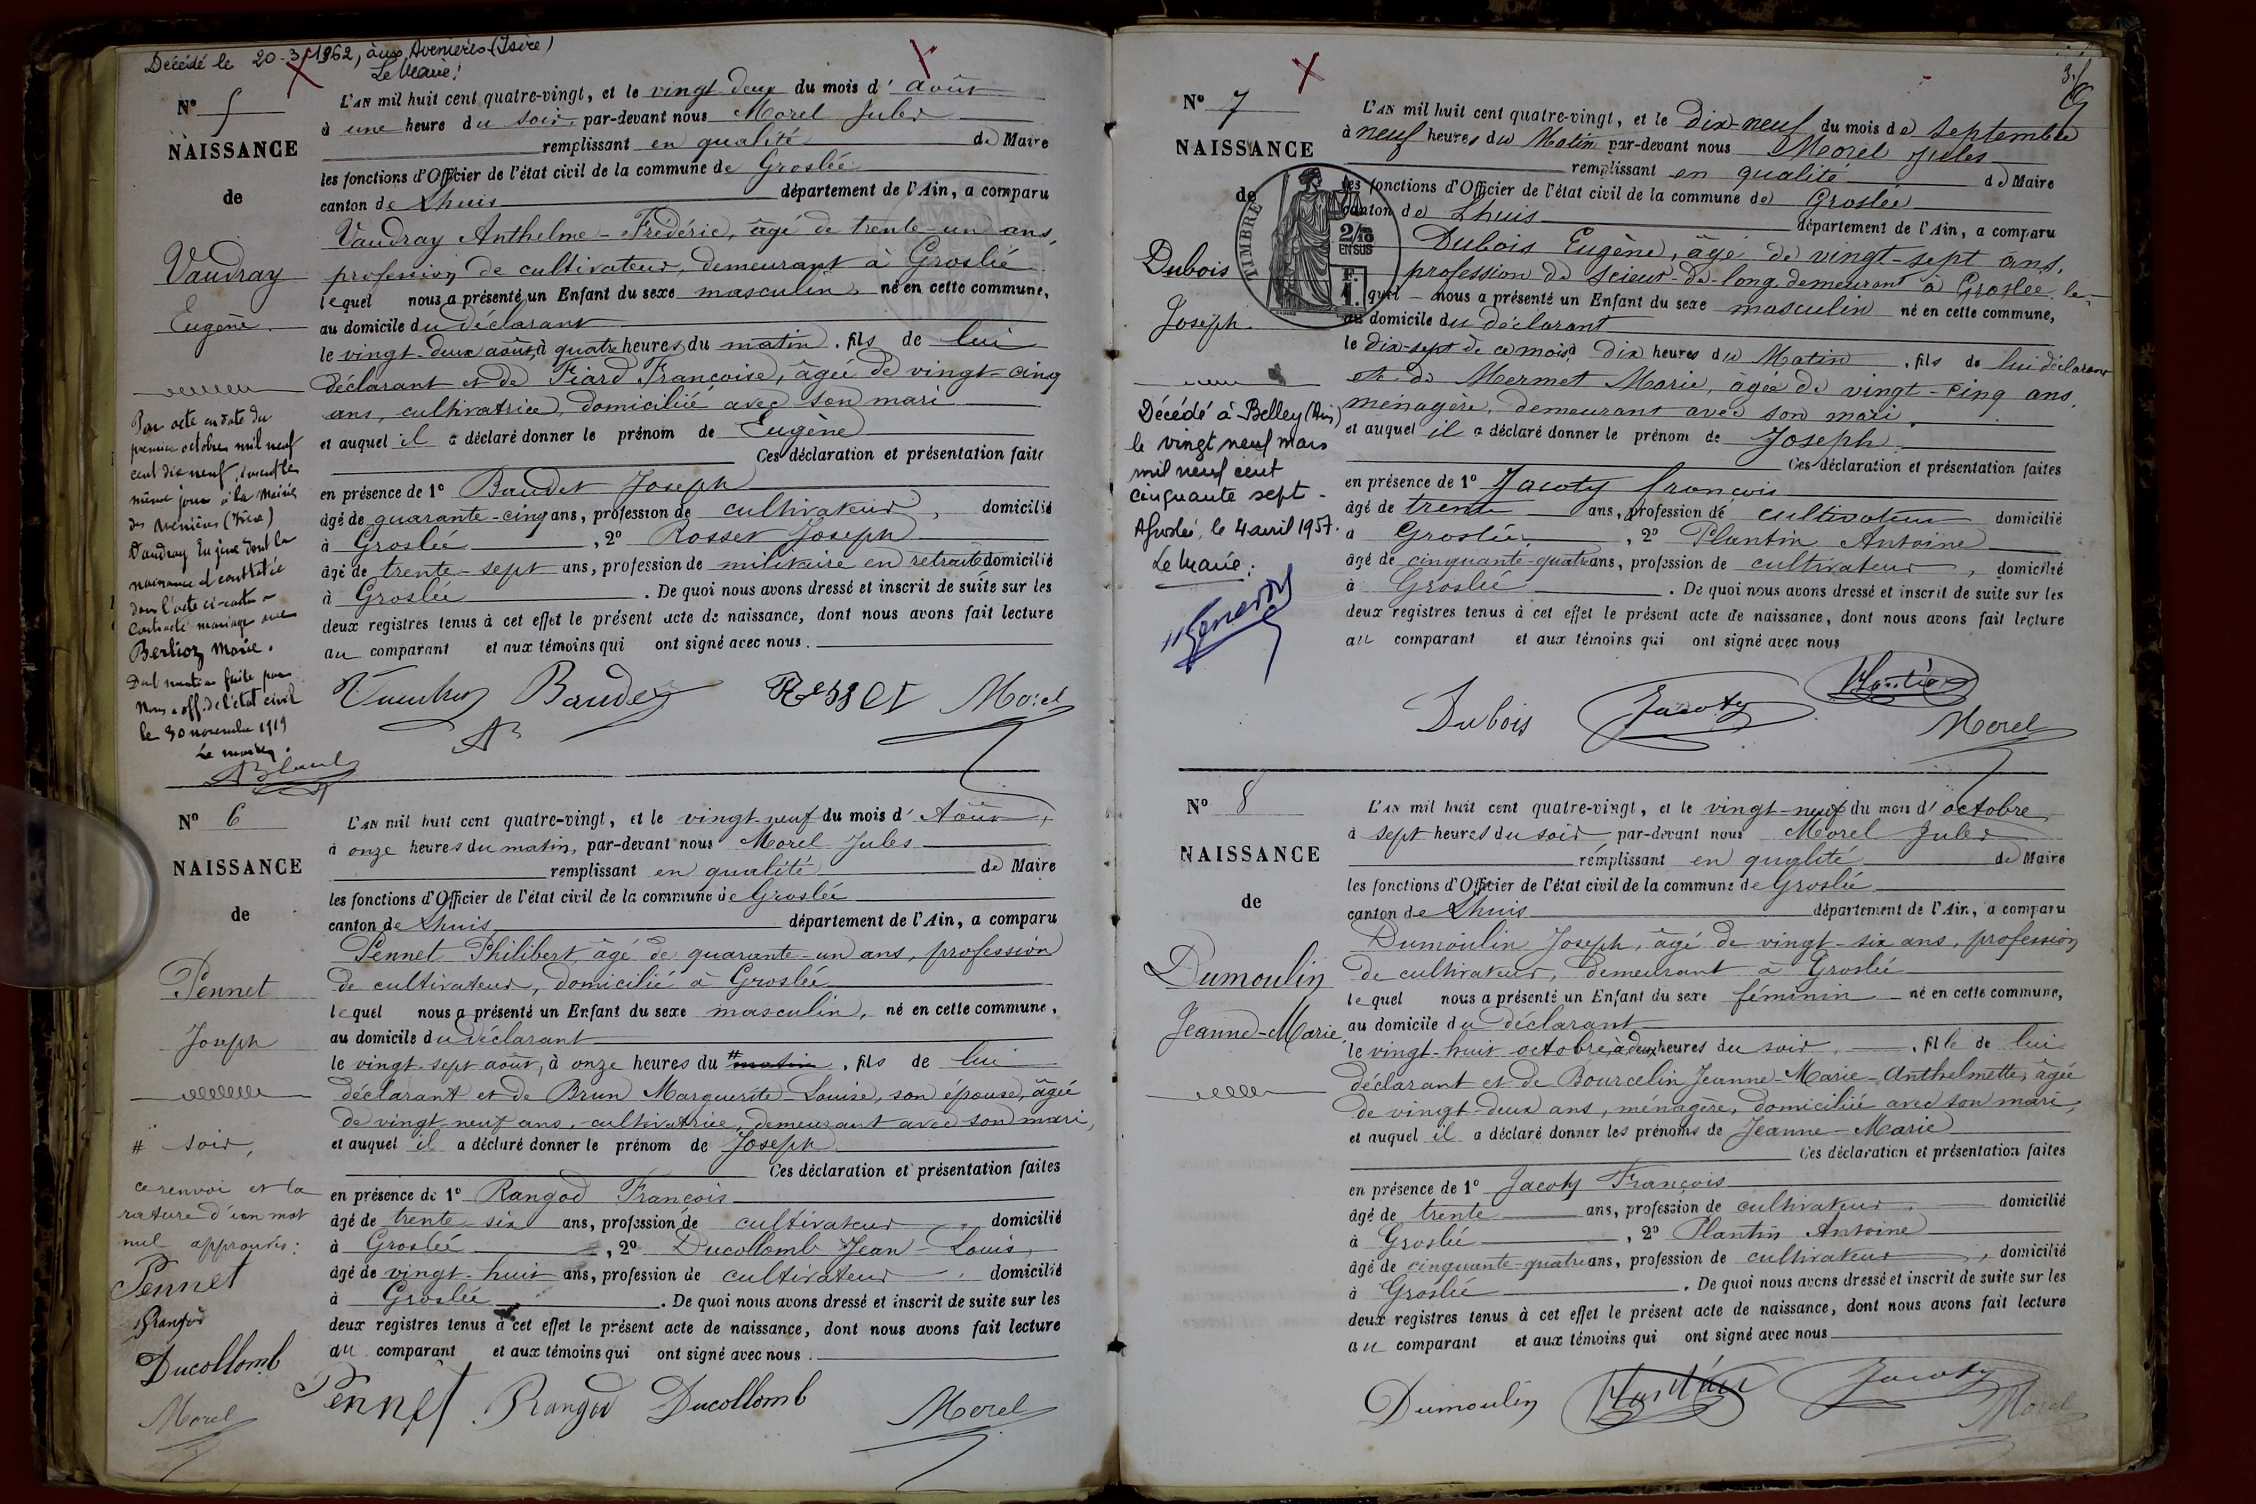 Décédé le 20-3-1962, aux Avenières (Isère)
Le Maire:
N° 5
NAISSANCE
de
Vaudray
Eugène
Par acte en date du
premier octobre mil neuf
cent dix neuf, inscrit le
même jour à la Mairie
des Avenières (Isère)
Vaudray Eugène dont la
naissance est constatée
dans l'acte ci-contre a
contracté mariage avec
Berlioz Marie.
Dont mention faite par
Nous off. de l'état civil
le 30 novembre 1919
Le maire.
L'AN mil huit cent quatre-vingt, et le vingt-deux du mois d'août
à une heure du soir, par-devant nous Morel Jules
remplissant en qualité de Maire
les fonctions d'Officier de l'état civil de la commune de Groslée
canton de Lhuis département de l'Ain, a comparu
Vaudray Anthelme-Frédéric, âgé de trente-un ans,
profession de cultivateur, demeurant à Groslée
lequel nous a présenté un Enfant du sexe masculin, né en cette commune,
au domicile du déclarant
le vingt-deux août, à quatre heures du matin, fils de lui
déclarant et de Fiard Françoise, âgée de vingt-cinq
ans, cultivatrice, domiciliée avec son mari
et auquel il a déclaré donner le prénom de Eugène
Ces déclaration et présentation faites
en présence de 1° Baudet Joseph
âgé de quarante-cinq ans, profession de cultivateur, domicilié
à Groslée, 2° Rosset Joseph
âgé de trente-sept ans, profession de militaire en retraite domicilié
à Groslée. De quoi nous avons dressé et inscrit de suite sur les
deux registres tenus à cet effet le présent acte de naissance, dont nous avons fait lecture
au comparant et aux témoins qui ont signé avec nous.
Baudet Rosset Morel
N° 6
NAISSANCE
de
Pennet
Joseph
# soir,
ce renvoi et la
rature d'un mot
nul approuvés:
Pennet
Rangod
Ducollomb
Morel
L'AN mil huit cent quatre-vingt, et le vingt-neuf du mois d'Août,
à onze heures du matin, par-devant nous Morel Jules
remplissant en qualité de Maire
les fonctions d'Officier de l'état civil de la commune de Groslée
canton de Lhuis département de l'Ain, a comparu
Pennet Philibert, âgé de quarante-un ans, profession
de cultivateur, domicilié à Groslée
lequel nous a présenté un Enfant du sexe masculin, né en cette commune,
au domicile du déclarant
le vingt-sept août, à onze heures du # matin, fils de lui
déclarant et de Brun Marguerite-Louise, son épouse, âgée
de vingt-neuf ans, cultivatrice, demeurant avec son mari,
et auquel il a déclaré donner le prénom de Joseph
Ces déclaration et présentation faites
en présence de 1° Rangod François
âgé de trente-six ans, profession de cultivateur, domicilié
à Groslée, 2° Ducollomb Jean-Louis,
âgé de vingt-huit ans, profession de cultivateur, domicilié
à Groslée. De quoi nous avons dressé et inscrit de suite sur les
deux registres tenus à cet effet le présent acte de naissance, dont nous avons fait lecture
au comparant et aux témoins qui ont signé avec nous.
Pennet Rangod Ducollomb Morel
N° 7
NAISSANCE
de
Dubois
Joseph
Décédé à Belley (Ain)
le vingt neuf mars
mil neuf cent
cinquante sept -
A Groslée, le 4 avril 1957.
Le Maire:
TIMBRE
2/10
EN SUS
F.
1.
L'AN mil huit cent quatre-vingt, et le Dix-neuf du mois de septembre
à neuf heures du Matin par-devant nous Morel Jules
remplissant en qualité de Maire
les fonctions d'Officier de l'état civil de la commune de Groslée
canton de Lhuis département de l'Ain, a comparu
Dubois Eugène, âgé de vingt-sept ans,
profession de scieur-de-long demeurant à Groslée. le-
quel nous a présenté un Enfant du sexe masculin né en cette commune,
au domicile du déclarant
le dix-sept de ce mois à Dix heures du Matin, fils de lui déclarant
et de Mermet Marie, âgée de vingt-cinq ans,
ménagère, demeurant avec son mari.
et auquel il a déclaré donner le prénom de Joseph
Ces déclaration et présentation faites
en présence de 1° Jacoty françois
âgé de trente ans, profession de cultivateur domicilié
à Groslée, 2° Plantin Antoine
âgé de cinquante-quatre ans, profession de cultivateur, domicilié
à Groslée. De quoi nous avons dressé et inscrit de suite sur les
deux registres tenus à cet effet le présent acte de naissance, dont nous avons fait lecture
au comparant et aux témoins qui ont signé avec nous
Dubois Jacoty Plantin Morel
N° 8
NAISSANCE
de
Dumoulin
Jeanne-Marie
L'AN mil huit cent quatre-vingt, et le vingt-neuf du mois d'octobre
à sept heures du soir par-devant nous Morel Jules
remplissant en qualité de Maire
les fonctions d'Officier de l'état civil de la commune de Groslée
canton de Lhuis département de l'Ain, a comparu
Dumoulin Joseph, âgé de vingt-six ans, profession
de cultivateur, demeurant à Groslée
lequel nous a présenté un Enfant du sexe féminin né en cette commune,
au domicile du déclarant
le vingt-huit octobre, à deux heures du soir, fille de lui
déclarant et de Bourcelin Jeanne-Marie-Anthelmette, âgée
de vingt-deux ans, ménagère, domiciliée avec son mari,
et auquel il a déclaré donner les prénoms de Jeanne-Marie
Ces déclaration et présentation faites
en présence de 1° Jacoty François
âgé de trente ans, profession de cultivateur, domicilié
à Groslée, 2° Plantin Antoine
âgé de cinquante-quatre ans, profession de cultivateur, domicilié
à Groslée. De quoi nous avons dressé et inscrit de suite sur les
deux registres tenus à cet effet le présent acte de naissance, dont nous avons fait lecture
au comparant et aux témoins qui ont signé avec nous
Dumoulin Plantin Jacoty Morel